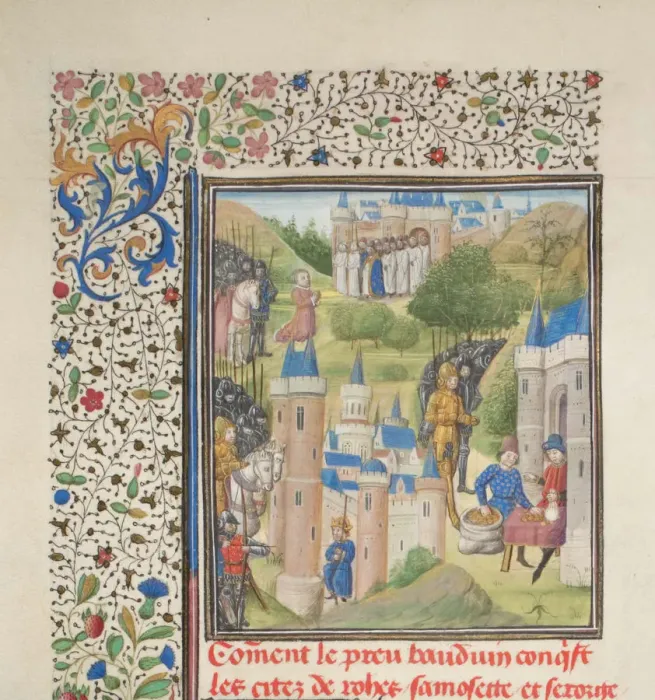 Com̃ent le preu bauduin conq̃st
les citez de rohes samosette et seroige